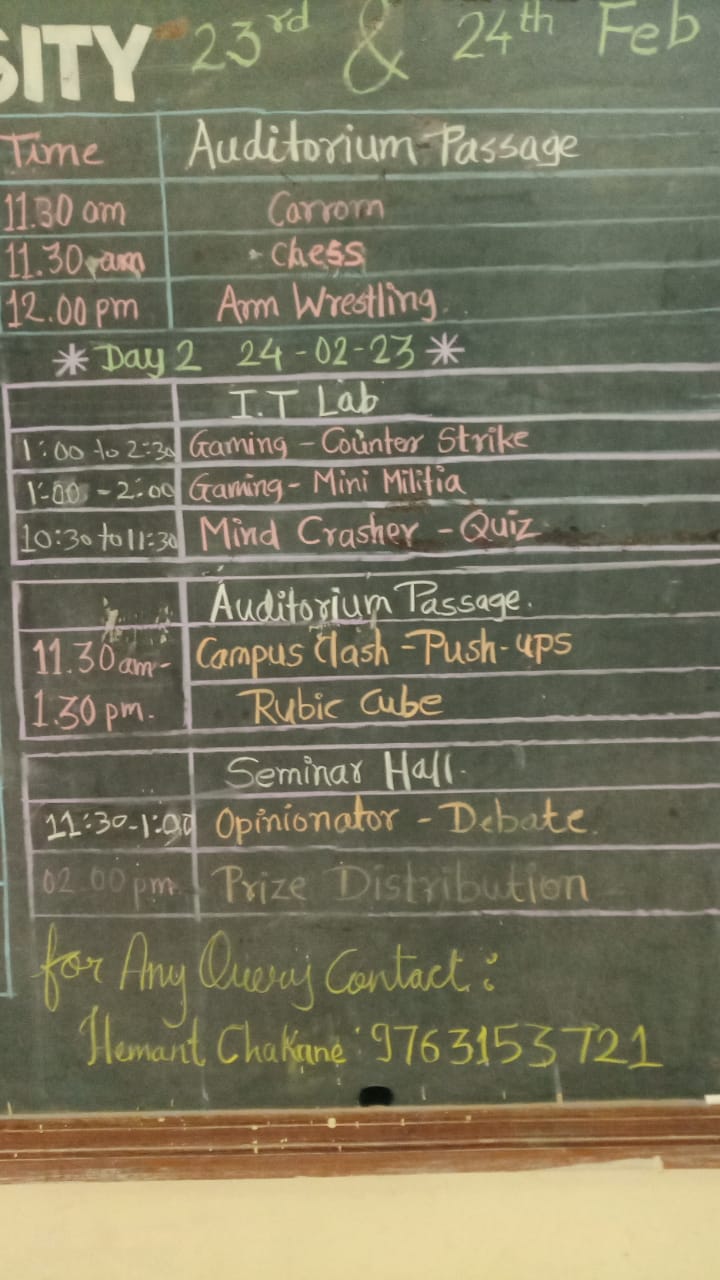 SITY 23rd & 24th Feb
Time Auditorium Passage
11.30 am Carrom
11.30 am Chess
12.00 pm Arm Wrestling
* Day 2 24-02-23 *
I.T Lab
1:00 to 2:30 Gaming - Counter Strike
1:00 - 2:00 Gaming - Mini Militia
10:30 to 11:30 Mind Crasher - Quiz
Auditorium Passage.
11.30 am - Campus Clash - Push-ups
1.30 pm. Rubic Cube
Seminar Hall.
11:30-1:00 Opinionator - Debate.
02.00 pm Prize Distribution
for Any Query Contact :
Hemant Chakane : 9763153721